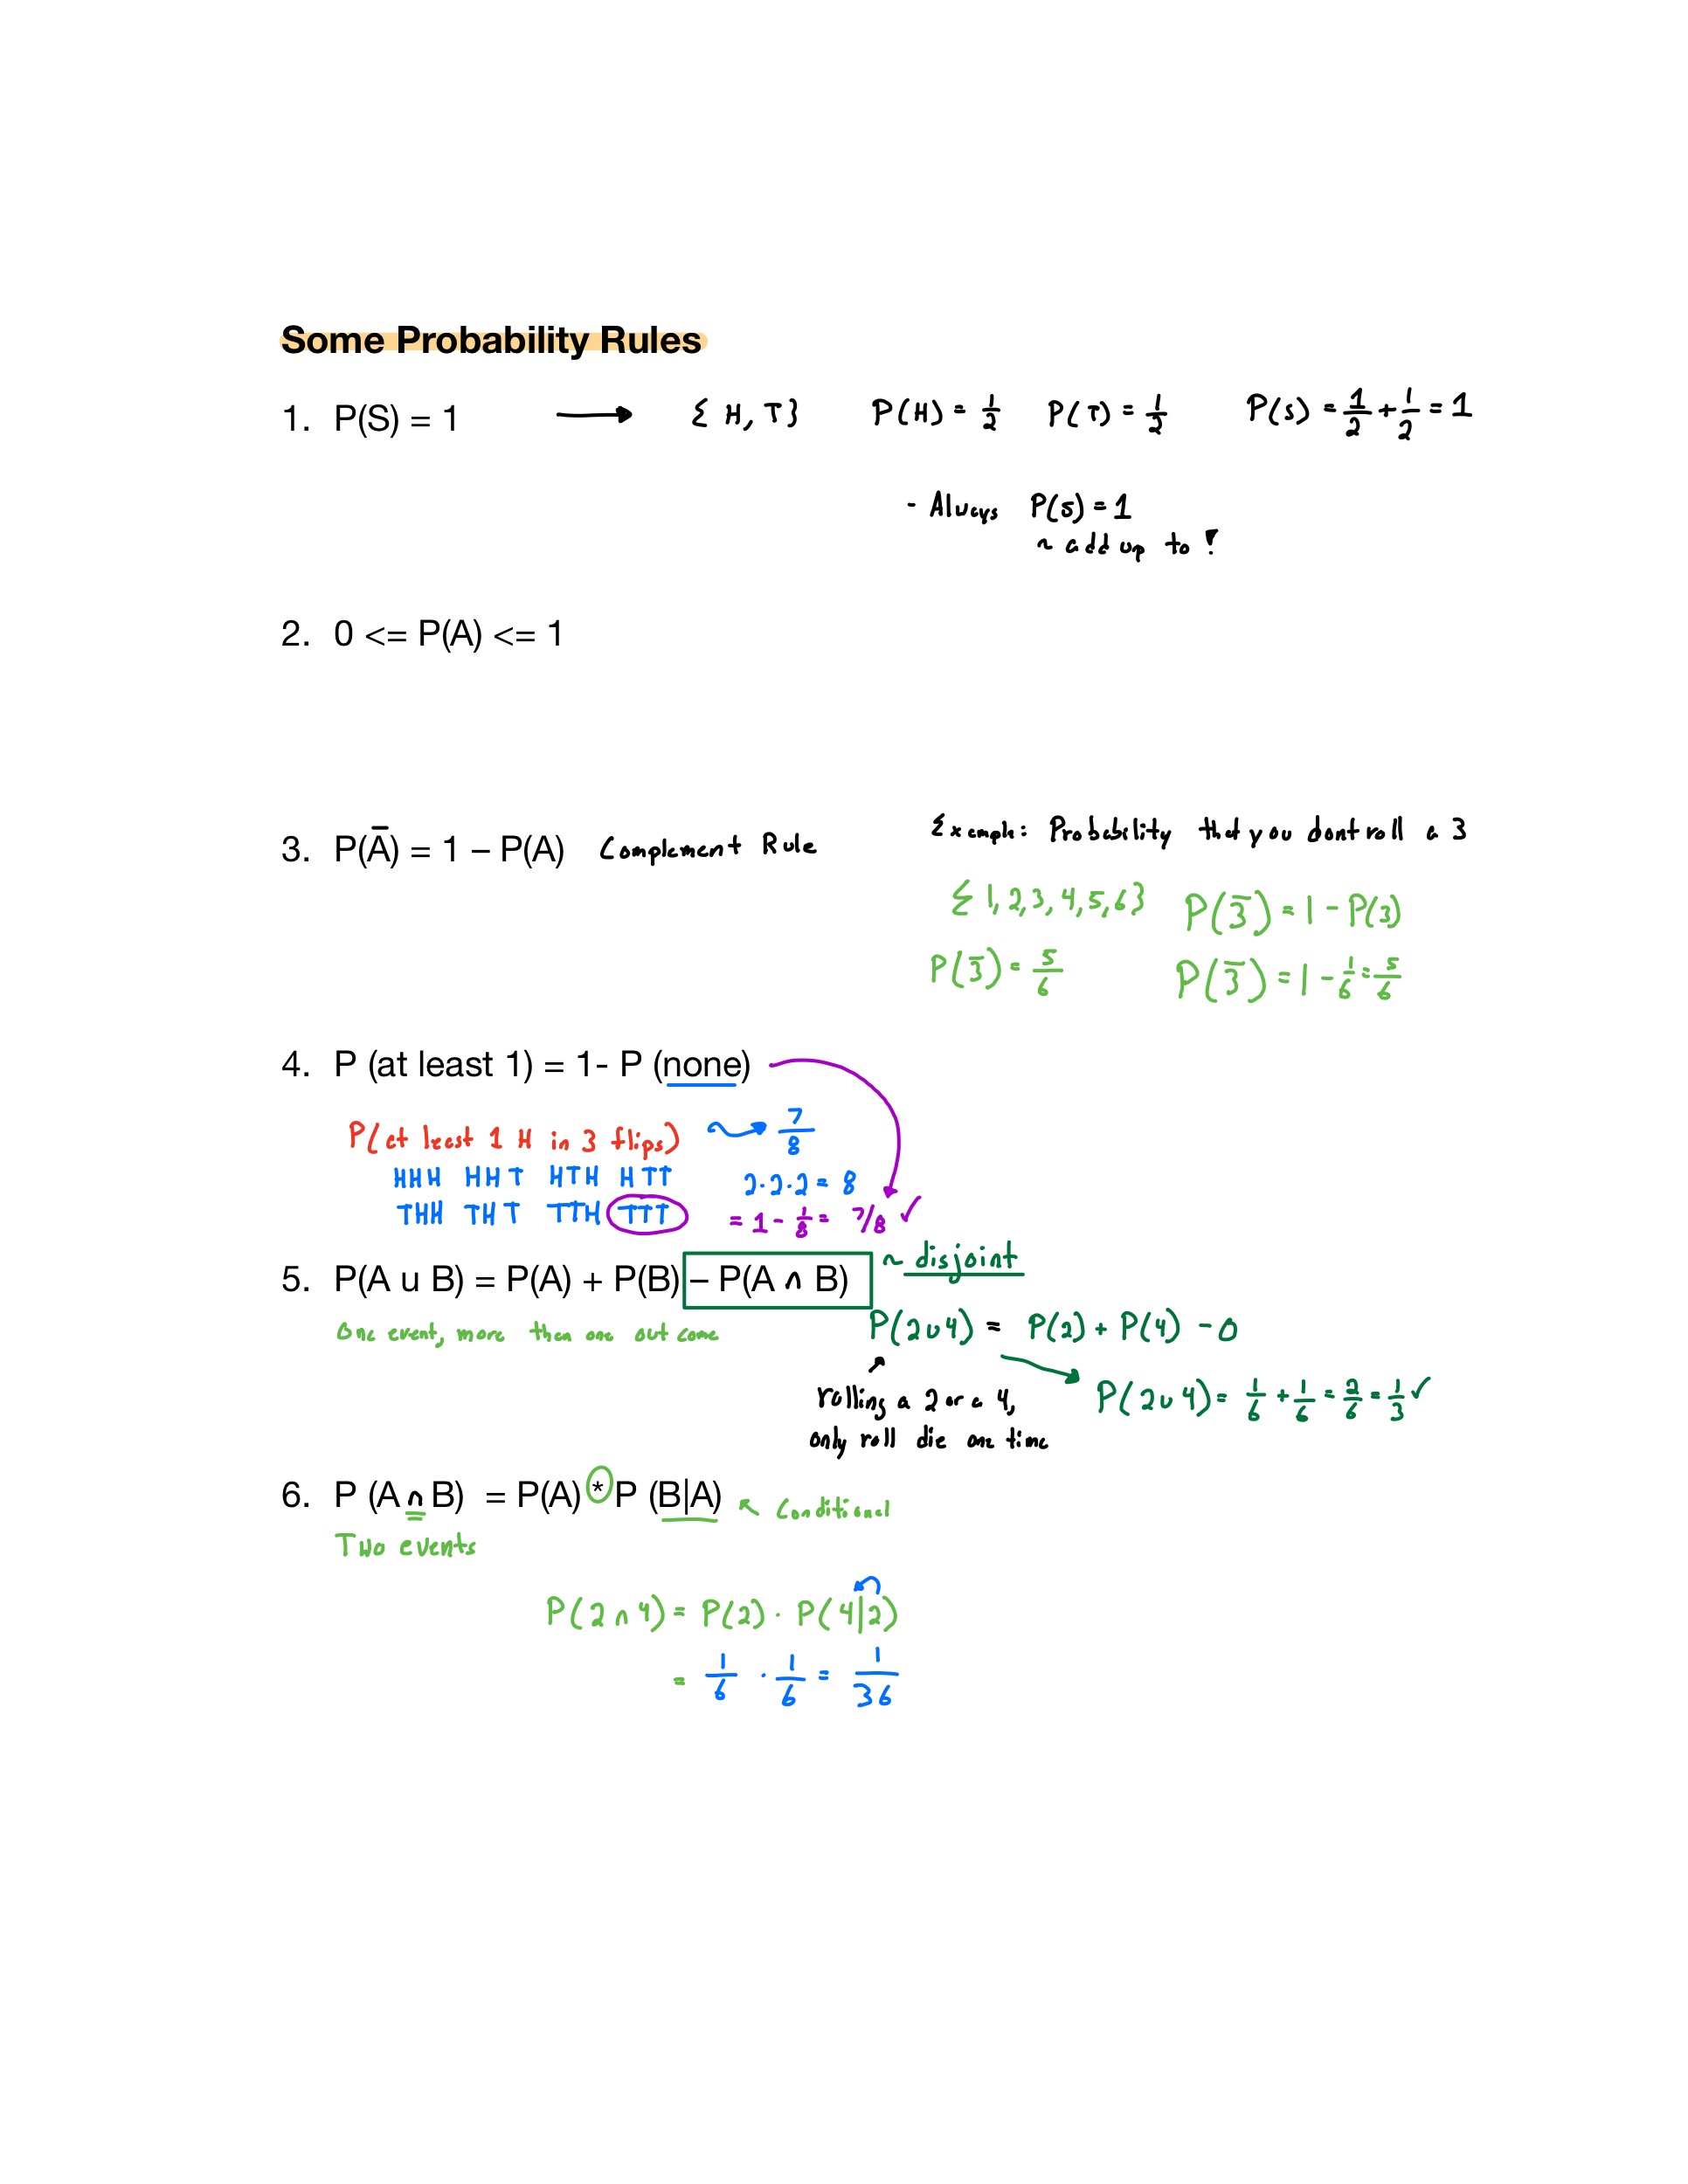 Some Probability Rules
1. P(S) = 1 → { H, T} P(H) = 1/2 P(T) = 1/2 P(S) = 1/2 + 1/2 = 1
- Always P(S) = 1
~ add up to !
2. 0 <= P(A) <= 1
3. P(A̅) = 1 – P(A) Complement Rule
Example: Probability that you dont roll a 3
{ 1, 2, 3, 4, 5, 6} P(3̅) = 1 - P(3)
P(3̅) = 5/6 P(3̅) = 1 - 1/6 = 5/6
4. P (at least 1) = 1- P (none)
P(at least 1 H in 3 flips) → 7/8
HHH HHT HTH HTT 2·2·2 = 8
THH THT TTH TTT = 1 - 1/8 = 7/8 ✓
5. P(A u B) = P(A) + P(B) – P(A ∩ B) ~ disjoint
One event, more then one out come P(2∪4) = P(2) + P(4) - 0
rolling a 2 or a 4, P(2∪4) = 1/6 + 1/6 = 2/6 = 1/3 ✓
only roll die one time
6. P (A ∩ B) = P(A) * P (B|A) ↖ Conditional
Two events
P(2∩4) = P(2) · P(4|2)
= 1/6 · 1/6 = 1/36